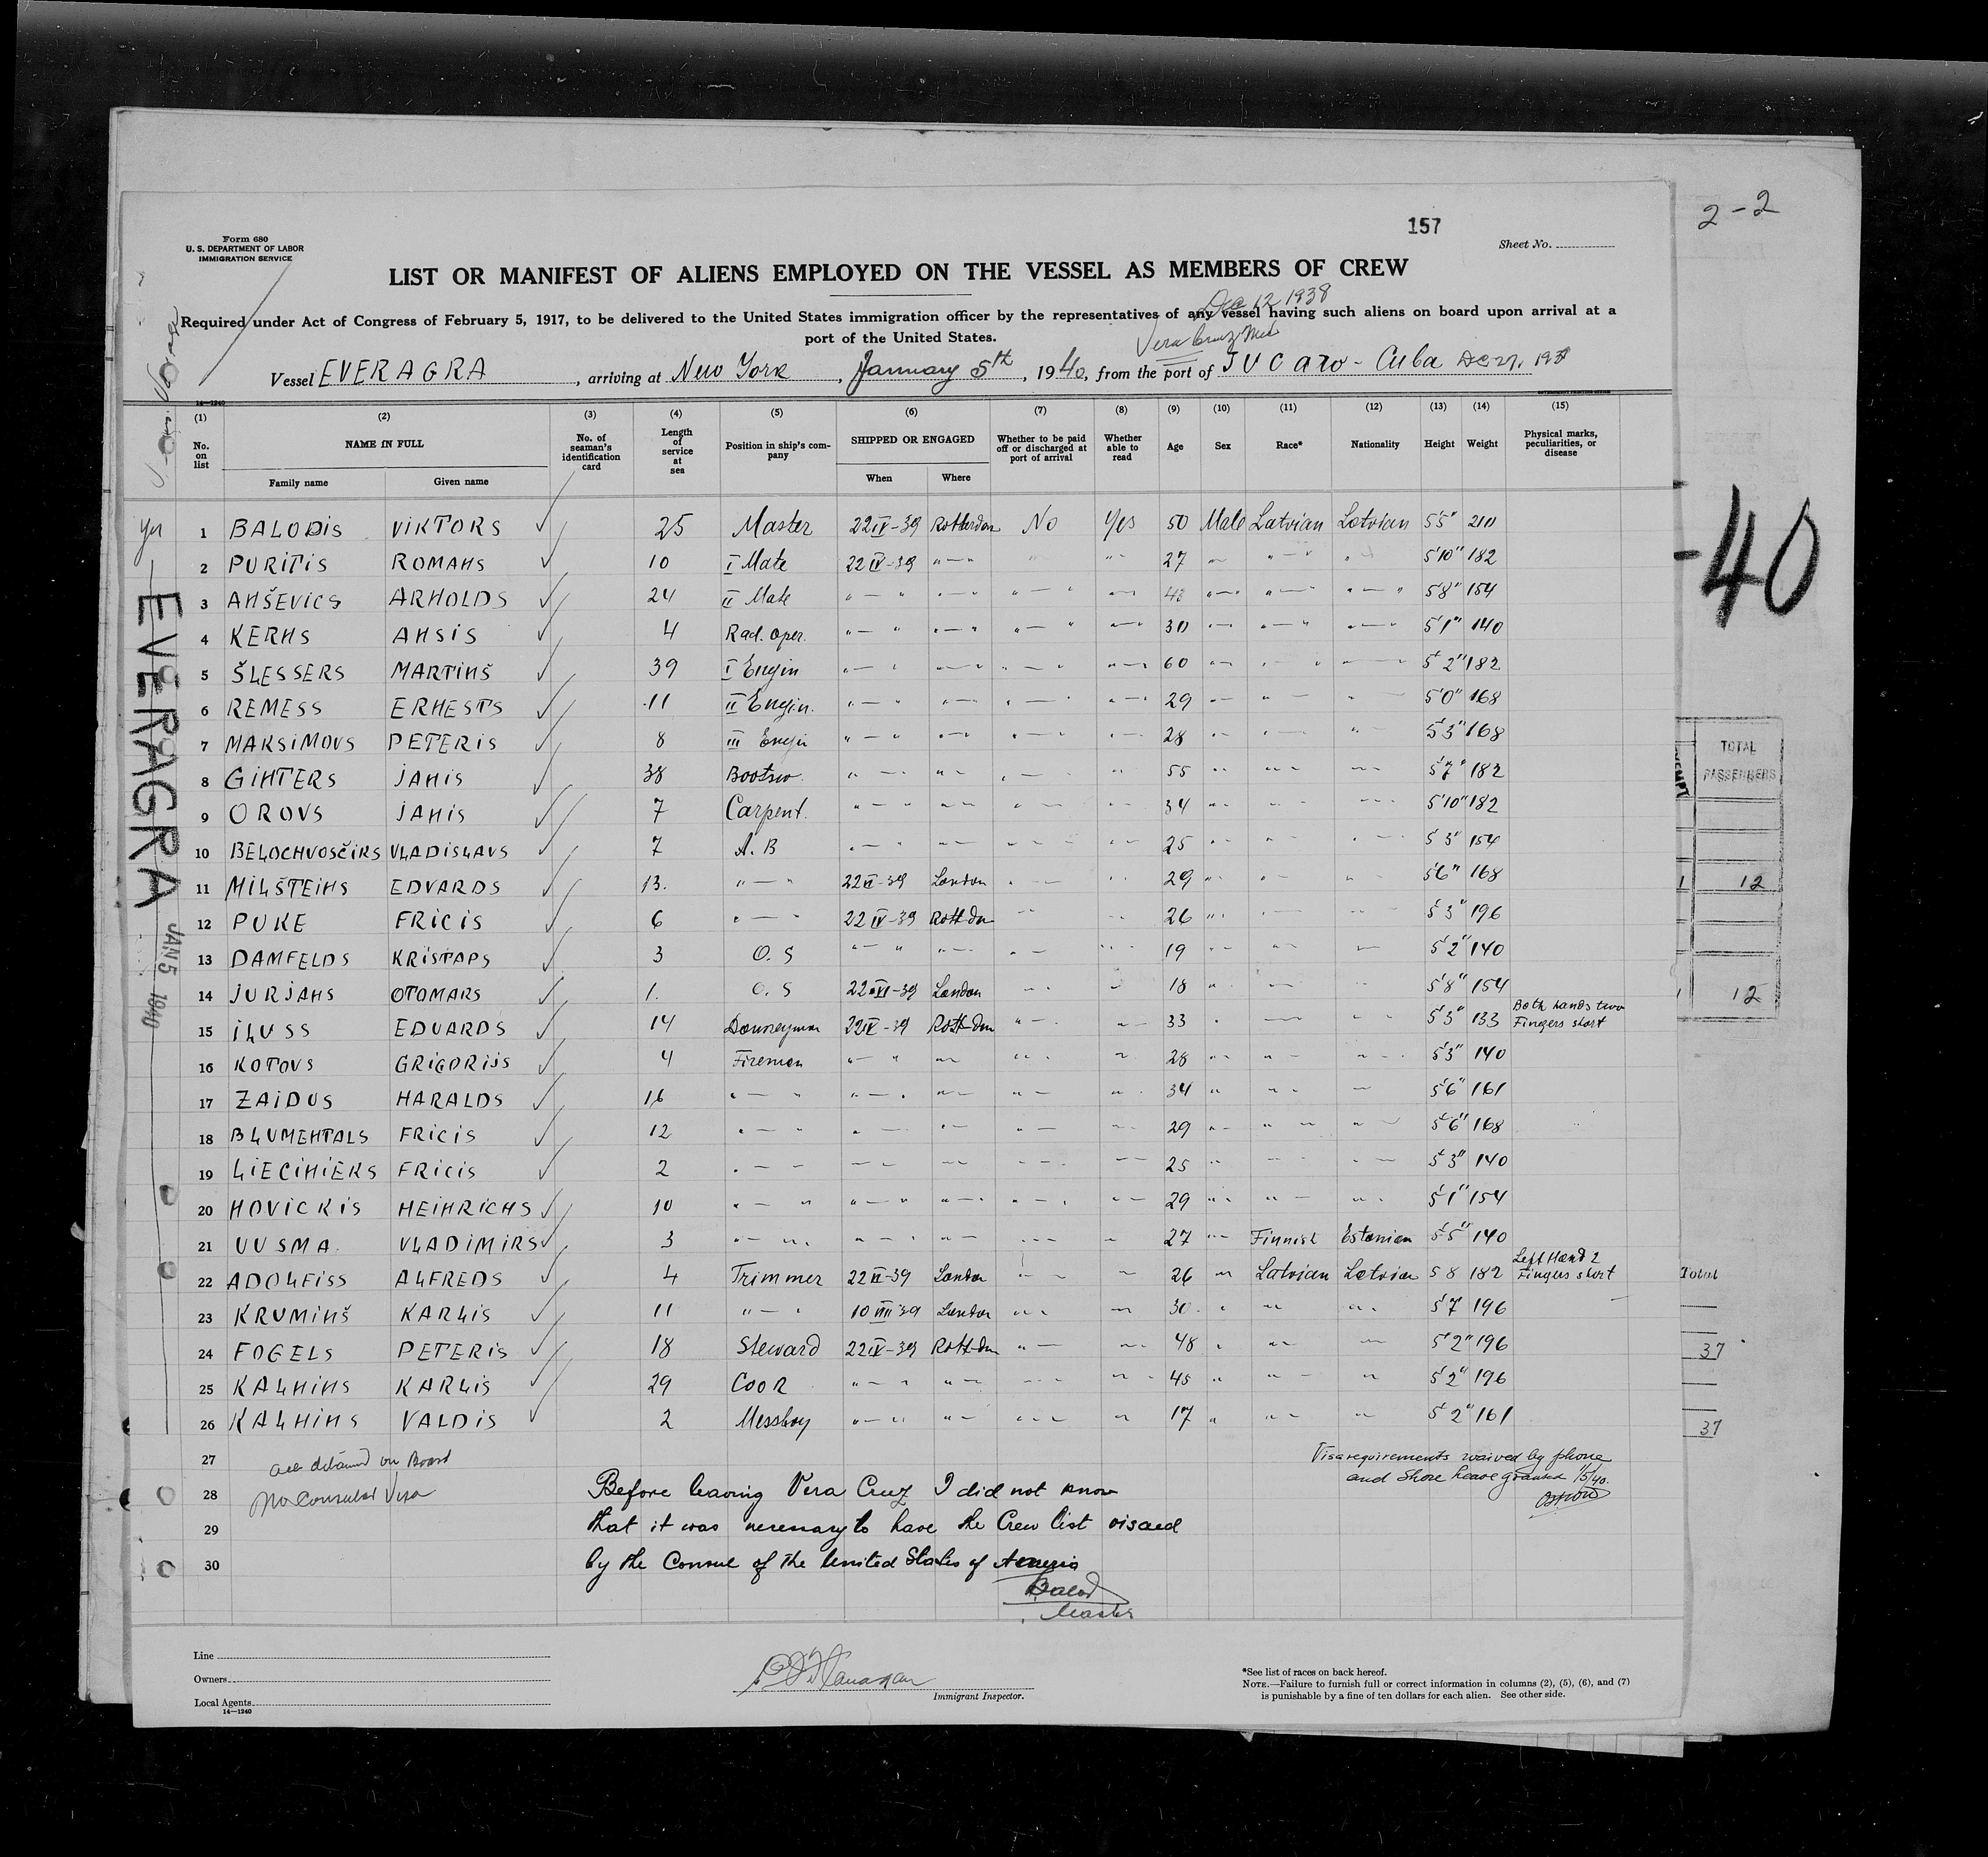 2-2
157
Form 680
U. S. DEPARTMENT OF LABOR
IMMIGRATION SERVICE
Sheet No.
LIST OR MANIFEST OF ALIENS EMPLOYED ON THE VESSEL AS MEMBERS OF CREW
Dec 12 1938
Required under Act of Congress of February 5, 1917, to be delivered to the United States immigration officer by the representatives of any vessel having such aliens on board upon arrival at a
port of the United States.
Vera Cruz Mex
Vessel EVERAGRA, arriving at New York, January 5th, 1940, from the port of JUCaro - Cuba Dec 27, 193
14—1240
(1) (2) (3) (4) (5) (6) (7) (8) (9) (10) (11) (12) (13) (14) (15)
No. on list NAME IN FULL Family name Given name No. of seaman's identification card Length of service at sea Position in ship's company SHIPPED OR ENGAGED When Where Whether to be paid off or discharged at port of arrival Whether able to read Age Sex Race* Nationality Height Weight Physical marks, peculiarities, or disease
yes
1 BALODIS VIKTORS ✓ 25 Master 22 IV-39 Rotterdam No Yes 50 Male Latvian Latvian 5'5" 210
2 PURITIS ROMANS ✓ 10 I Mate 22 IV-39 "—" " "— 27 "— "—" " 5'10" 182
3 ANŠEVICS ARNOLDS ✓ 24 II Mate "—" "—" "—" "—" "—" "—" "—" 5'8" 154
4 KERNS ANSIS ✓ 4 Rad. oper. "—" "—" "—" "—" 30 "—" "—" "—" 5'1" 140
5 ŠLESSERS MARTINŠ ✓ 39 I Engin "—" "—" "—" "—" 60 "—" "—" "—" 5'2" 182
6 REMESS ERNESTS ✓ 11 II Engin. "—" "—" "—" "—" 29 "—" "—" "—" 5'0" 168
7 MAKSIMOVS PETERIS ✓ 8 III Engin "—" "—" "—" "—" 28 "—" "—" "—" 5'3" 168
8 GINTERS JANIS ✓ 38 Bootsw. "—" "—" "—" "—" 55 "—" "—" "—" 5'7" 182
9 OROVS JANIS ✓ 7 Carpent. "—" "—" "—" "—" 34 "—" "—" "—" 5'10" 182
10 BELOCHVOSČIKS VLADISLAVS ✓ 7 A. B "—" "—" "—" "—" 25 "—" "—" "—" 5'3" 154
11 MILŠTEINS EDVARDS ✓ 13. "—" London "—" "—" 29 "—" "—" "—" 5'6" 168
12 PUKE FRICIS ✓ 6 "—" 22 IV-39 Rott-dm "—" "—" 26 "—" "—" "—" 5'3" 196
13 DAMFELDS KRISTAPS ✓ 3 O. S "—" "—" "—" "—" 19 "—" "—" "—" 5'2" 140
14 JURJANS OTOMARS ✓ 1. O. S London "—" "—" 18 "—" "—" "—" 5'8" 154
15 ILUSS EDUARDS ✓ 14 Donkeyman 22 IV-39 Rott-dm "—" "—" 33 "—" "—" "—" 5'3" 133 Both hands two Fingers short
16 KOTOVS GRIGORIJS ✓ 4 Fireman "—" "—" "—" "—" 28 "—" "—" "—" 5'3" 140
17 ZAIDUS HARALDS ✓ 16 "—" "—" "—" "—" "—" 34 "—" "—" "—" 5'6" 161
18 BLUMENTALS FRICIS ✓ 12 "—" "—" "—" "—" "—" 29 "—" "—" "—" 5'6" 168
19 LIECINIEKS FRICIS ✓ 2 "—" "—" "—" "—" "—" 25 "—" "—" "—" 5'3" 140
20 NOVICKIS HEINRICHS ✓ 10 "—" "—" "—" "—" "—" 29 "—" "—" "—" 5'1" 154
21 UUSMA VLADIMIRS ✓ 3 "—" "—" "—" "—" "—" 27 "—" Finnish Estonian 5'5" 140
22 ADOLFISS ALFREDS ✓ 4 Trimmer London "—" "—" 26 "—" Latvian Latvian 5 8 182 Left Hand 2 Fingers short
23 KRUMINŠ KARLIS ✓ 11 "—" 10 VIII 39 London "—" "—" 30 "—" "—" "—" 5'7 196
24 FOGELS PETERIS ✓ 18 Steward 22 IV-39 Rott-dm "—" "—" 48 "—" "—" "—" 5'2" 196
25 KALNINS KARLIS ✓ 29 Cook "—" "—" "—" "—" 45 "—" "—" "—" 5'2" 196
26 KALNINS VALDIS ✓ 2 Messboy "—" "—" "—" "—" 17 "—" "—" "—" 5'2" 161
27 all detained on Board
28 No Consular Visa
29
30
Visa requirements waived by phone
and Shore Leave granted 1/5/40.
Before leaving Vera Cruz I did not know
that it was necessary to have the Crew list visaed
by the Consul of the United States of America
Balod
Master
EVERAGRA
JAN 5 1940
-40
TOTAL
PASSENGERS
12
12
Total
37
37
Line
Owners
Local Agents
14—1240
Immigrant Inspector.
*See list of races on back hereof.
NOTE.—Failure to furnish full or correct information in columns (2), (5), (6), and (7)
is punishable by a fine of ten dollars for each alien. See other side.